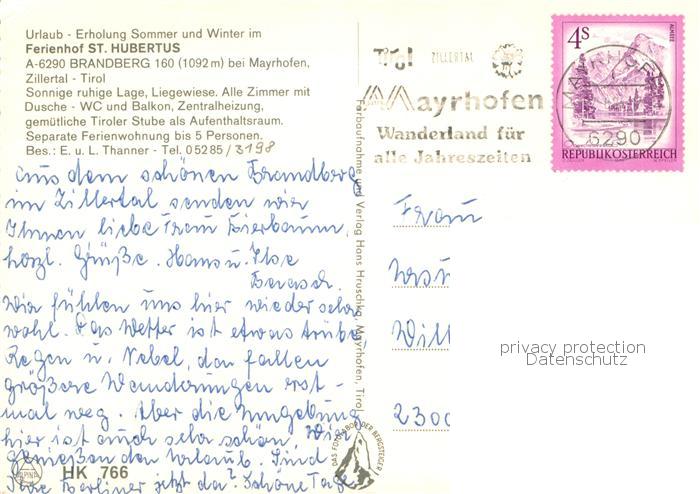 Urlaub - Erholung Sommer und Winter im
Ferienhof ST. HUBERTUS
A-6290 BRANDBERG 160 (1092 m) bei Mayrhofen,
Zillertal - Tirol
Sonnige ruhige Lage, Liegewiese. Alle Zimmer mit
Dusche - WC und Balkon, Zentralheizung,
gemütliche Tiroler Stube als Aufenthaltsraum.
Separate Ferienwohnung bis 5 Personen.
Bes.: E. u. L. Thanner - Tel. 0 52 85 / 3198
Aus dem schönen Brandberg
im Zillertal senden wir
Ihnen liebe Frau Bierbaum,
herzl. Grüße. Hans u. Ilse
Wir fühlen uns hier wieder sehr
wohl. Das Wetter ist etwas trübe,
Regen u. Nebel, da fallen
größere Wanderungen erst-
mal weg. Aber die Umgebung
hier ist auch sehr schön. Wir
genießen den Urlaub. Sind
Ihre Berliner jetzt da? Schöne Tage
HK 766
ALPINA
Farbaufnahme und Verlag Hans Hruschka, Mayrhofen, Tirol
DAS FOTOLABOR DER BERGSTEIGER
Tirol ZILLERTAL
Mayrhofen
Wanderland für
alle Jahreszeiten
4S
ALMSEE
MAYRHOFEN
6290
REPUBLIK ÖSTERREICH
Frau
2300
privacy protection
Datenschutz